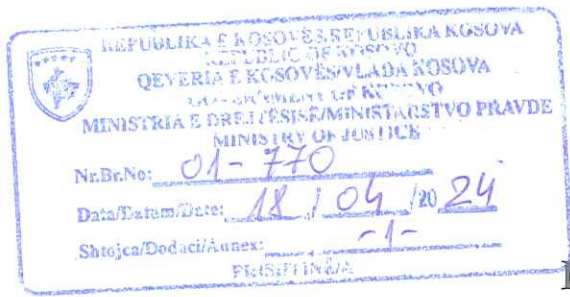 REPUBLIKA E KOSOVËS/REPUBLIKA KOSOVA
REPUBLIC OF KOSOVO
QEVERIA E KOSOVËS/VLADA KOSOVA
GOVERNMENT OF KOSOVO
MINISTRIA E DREJTËSISË/MINISTARSTVO PRAVDE
MINISTRY OF JUSTICE
Nr.Br.No: 01-770
Data/Datum/Date: 18 / 04 /20 24
Shtojca/Dodaci/Annex: -1-
PRISHTINË/A